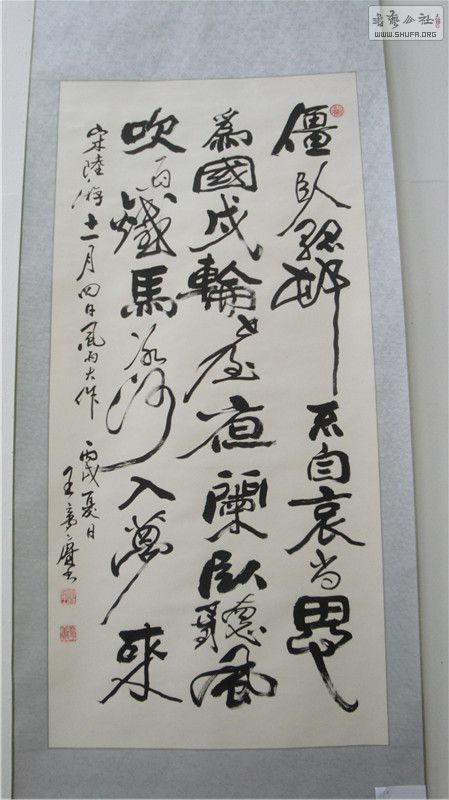 書藝公社
WWW.SHUFA.ORG
僵臥孤邨不自哀尚思
為國戍輪臺夜闌臥聽風
吹雨鐵馬冰河入夢來
宋陸游十一月四日風雨大作 丙戌夏日
王